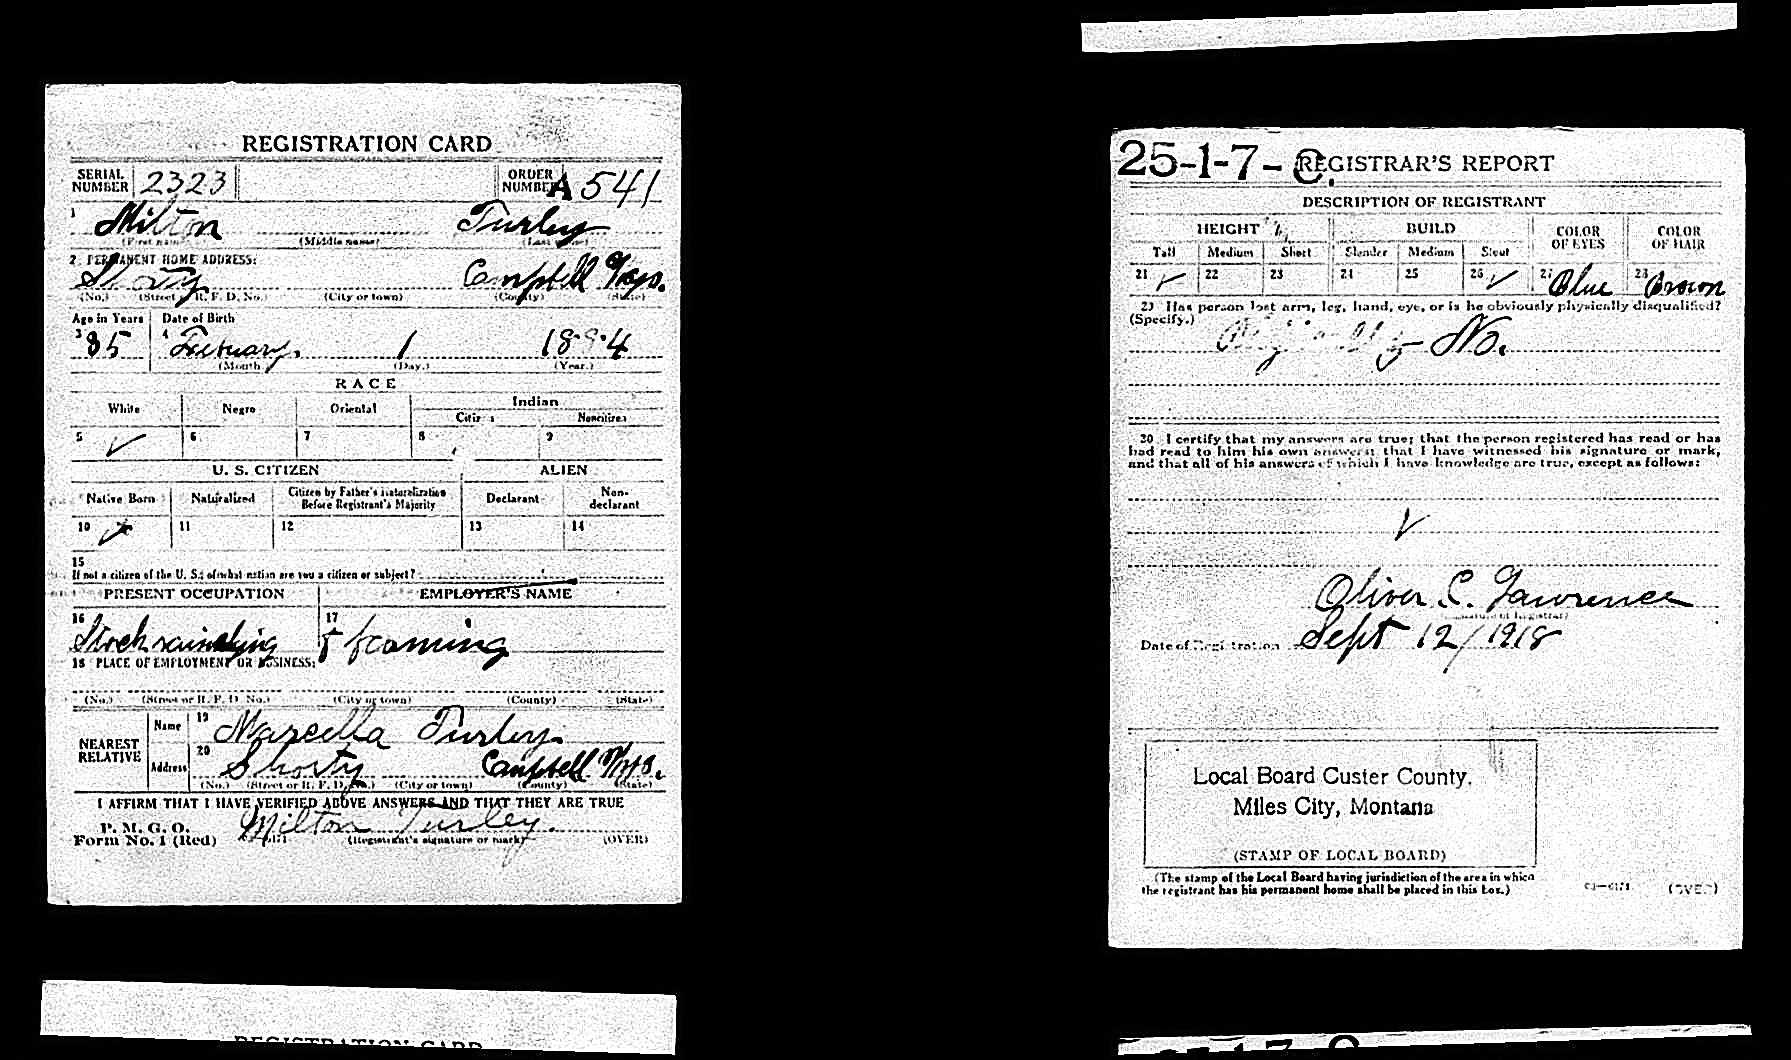 REGISTRATION CARD
SERIAL NUMBER 2323 ORDER NUMBER A 541
1 Milton Turley
(First name) (Middle name) (Last name)
2 PERMANENT HOME ADDRESS:
Shorty Campbell Wyo.
(No.) (Street or R. F. D. No.) (City or town) (County) (State)
Age in Years Date of Birth
3 35 4 February 1 1884
(Month) (Day.) (Year.)
RACE
White Negro Oriental Indian
Citizen Noncitizen
5 ✓ 6 7 8 9
U. S. CITIZEN ALIEN
Native Born Naturalized Citizen by Father's Naturalization Before Registrant's Majority Declarant Non-declarant
10 11 12 13 14
15
If not a citizen of the U. S., of what nation are you a citizen or subject?
PRESENT OCCUPATION EMPLOYER'S NAME
16 Stock raising 17 + farming
18 PLACE OF EMPLOYMENT OR BUSINESS:
(No.) (Street or R. F. D. No.) (City or town) (County) (State)
NEAREST RELATIVE Name 19 Marcella Turley
Address 20 Shorty Campbell Wyo.
(No.) (Street or R. F. D. No.) (City or town) (County) (State)
I AFFIRM THAT I HAVE VERIFIED ABOVE ANSWERS AND THAT THEY ARE TRUE
P. M. G. O.
Form No. 1 (Red) Milton Turley
(Registrant's signature or mark) (OVER)
REGISTRATION CARD
25-1-7-C. REGISTRAR'S REPORT
DESCRIPTION OF REGISTRANT
HEIGHT BUILD COLOR OF EYES COLOR OF HAIR
Tall Medium Short Slender Medium Stout
21 ✓ 22 23 24 25 26 ✓ 27 Blue 28 Brown
29 Has person lost arm, leg, hand, eye, or is he obviously physically disqualified?
(Specify.) No.
30 I certify that my answers are true; that the person registered has read or has
had read to him his own answers; that I have witnessed his signature or mark,
and that all of his answers of which I have knowledge are true, except as follows:
✓
Oliver C. Lawrence
(Signature of Registrar)
Date of Registration Sept 12/1918
Local Board Custer County,
Miles City, Montana
(STAMP OF LOCAL BOARD)
(The stamp of the Local Board having jurisdiction of the area in which
the registrant has his permanent home shall be placed in this box.)
(OVER)